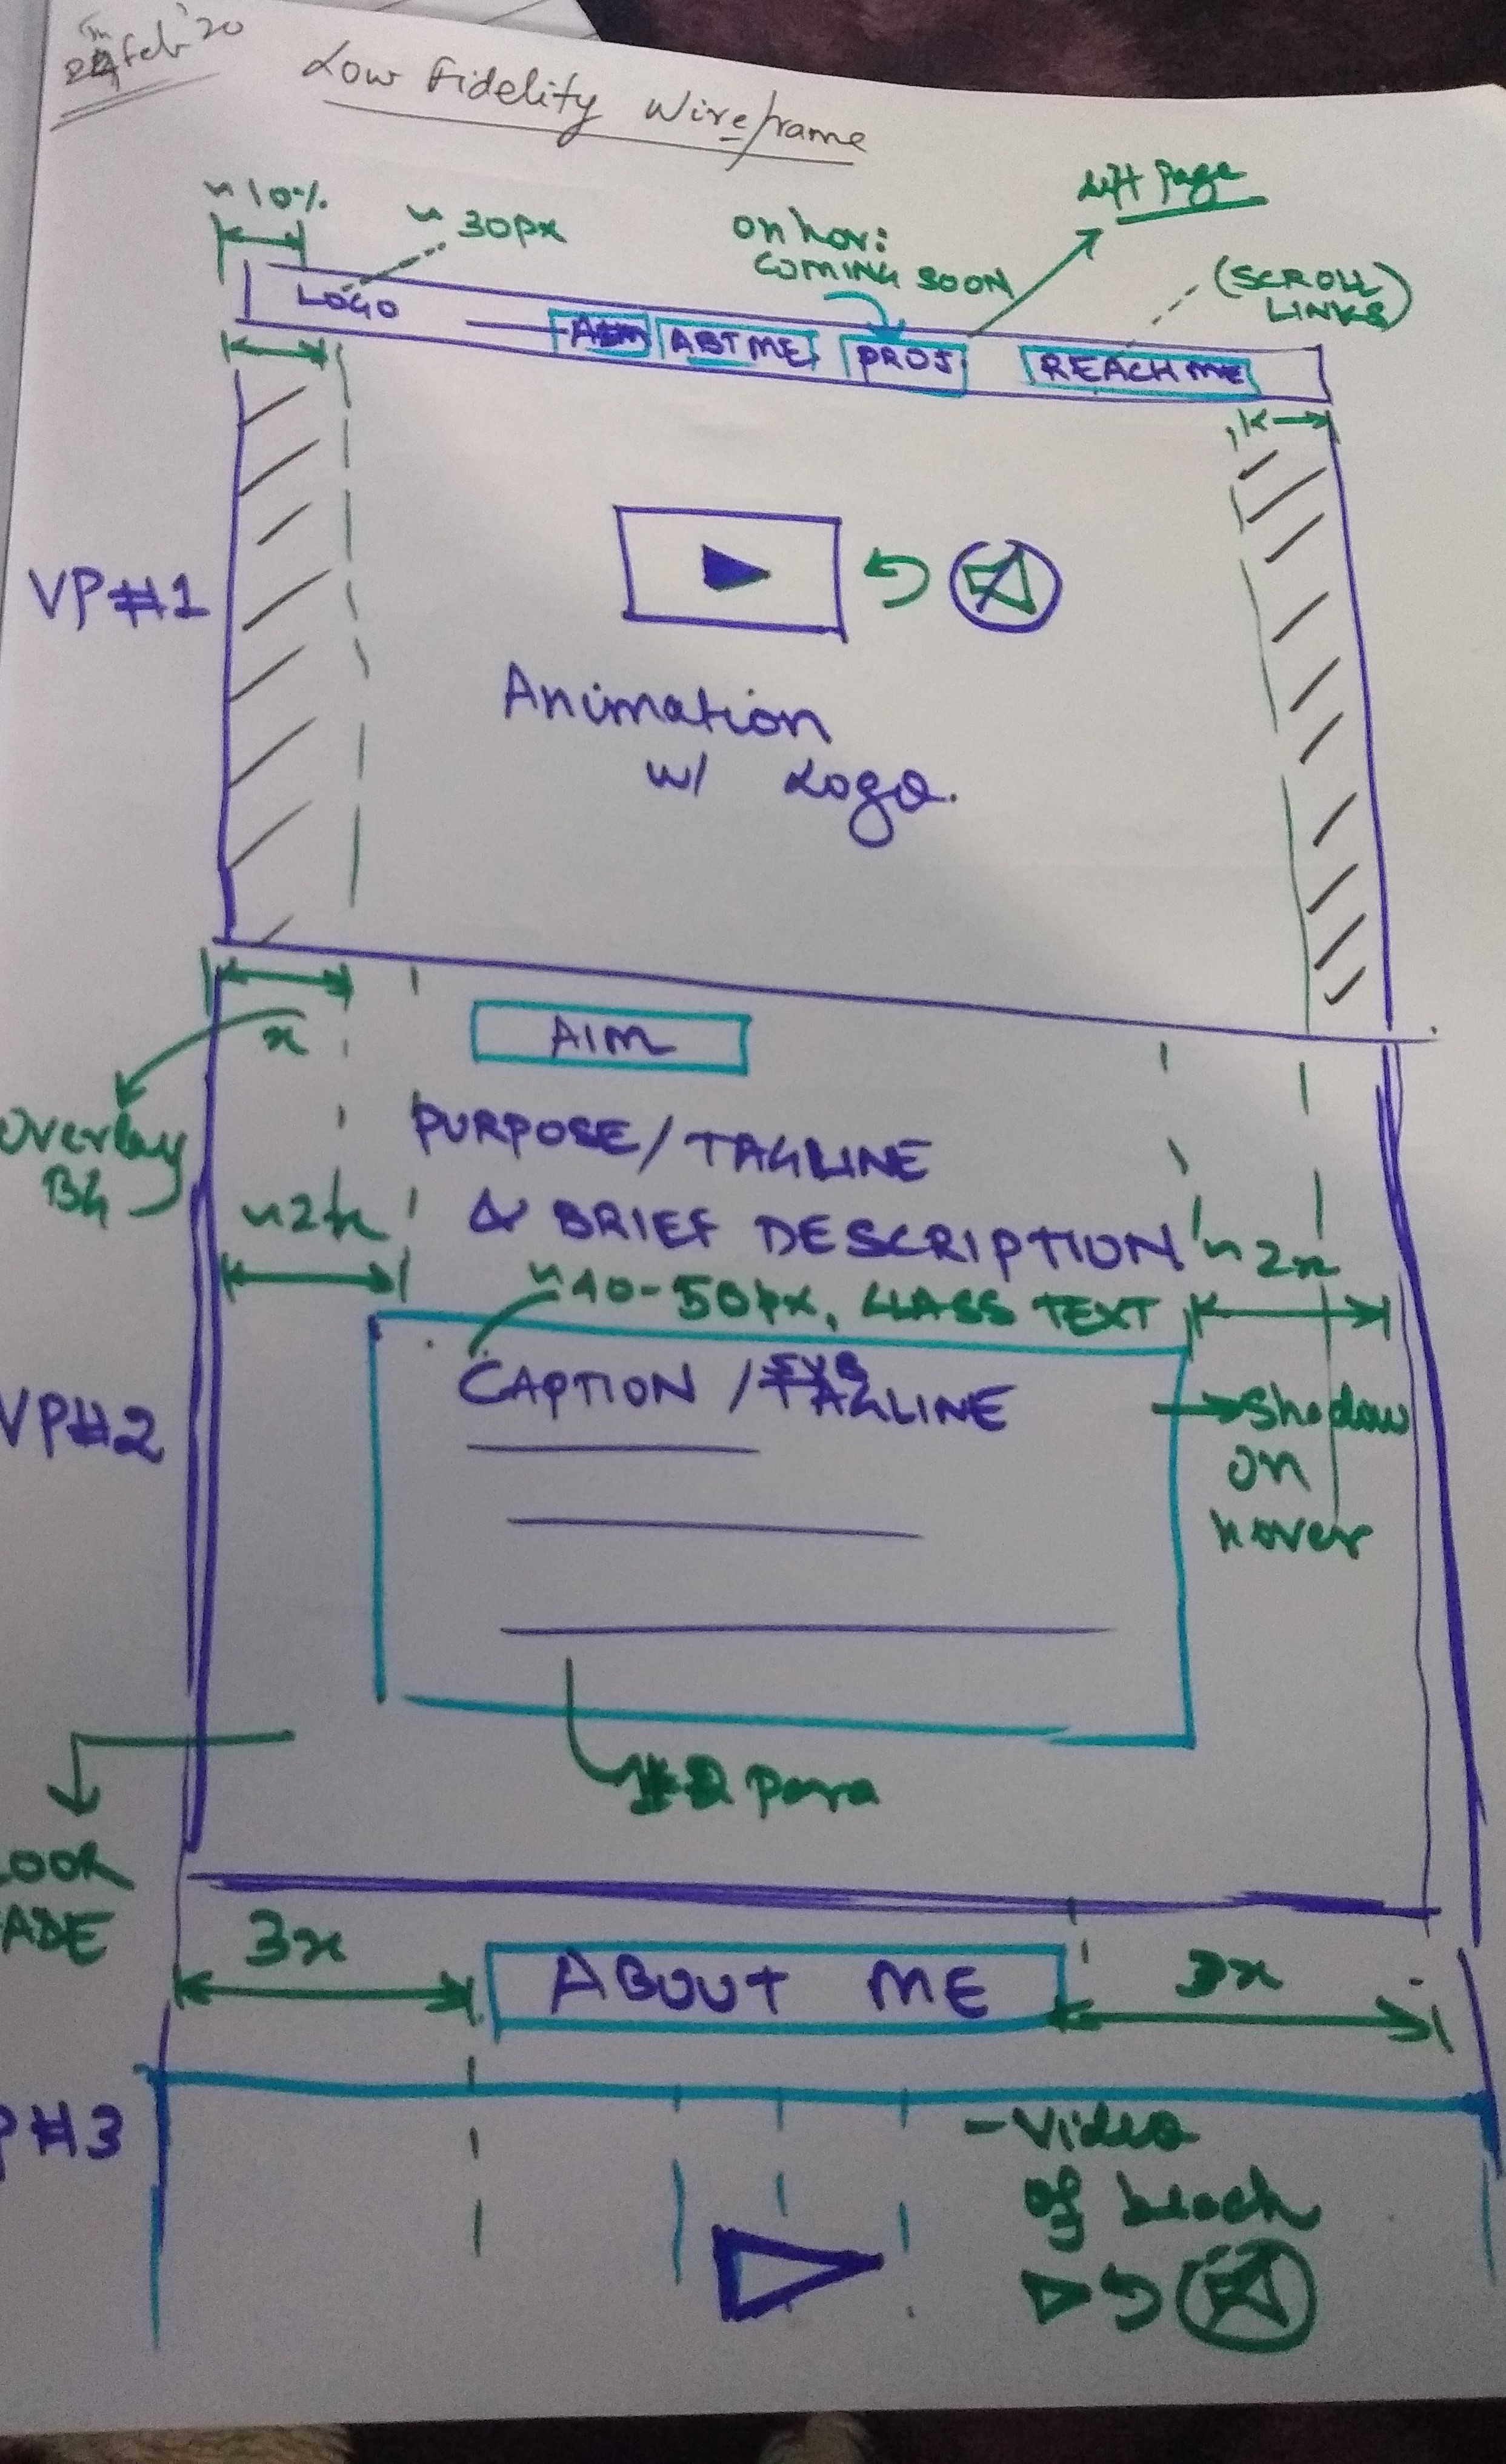 Feb '20
Low Fidelity Wireframe
~10%
~30px
on hov:
COMING SOON
Page
(SCROLL
LINKS)
LOGO
ABT ME
PROJ
REACH ME
VP#1
Animation
w/ Logo.
x
AIM
Overlay
PURPOSE/TAGLINE
& BRIEF DESCRIPTION
~2x
~2x
~40-50px, TEXT
CAPTION / TAGLINE
VP#2
Shadow
on
hover
para
3x
ABOUT ME
3x
P#3
- Video
of